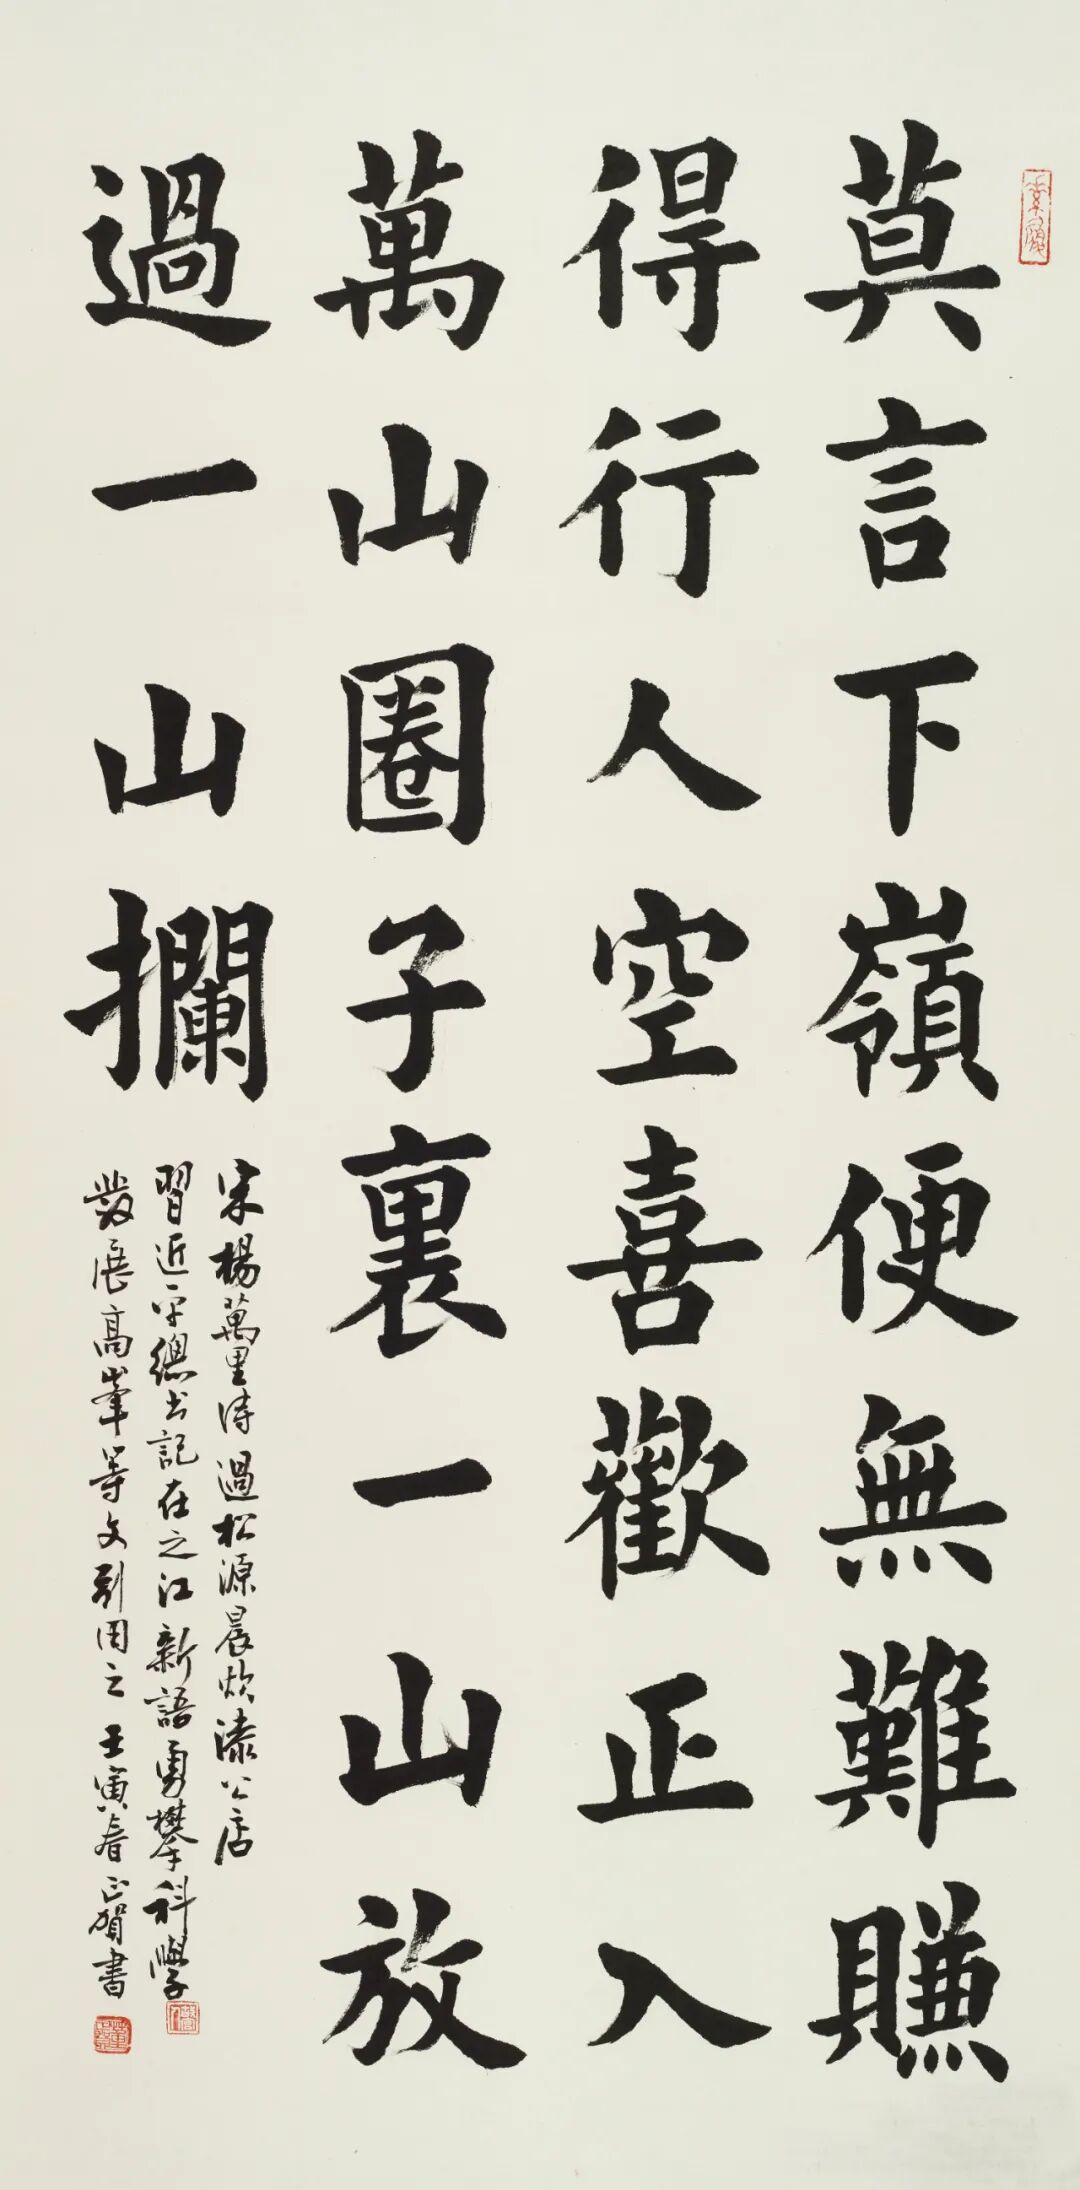 莫言下嶺便無難賺
得行人空喜歡正入
萬山圈子裏一山放
過一山攔
宋楊萬里詩過松源晨炊漆公店
習近平總書記在之江新語勇攀科學
發展高峯等文引用之壬寅春正賀書